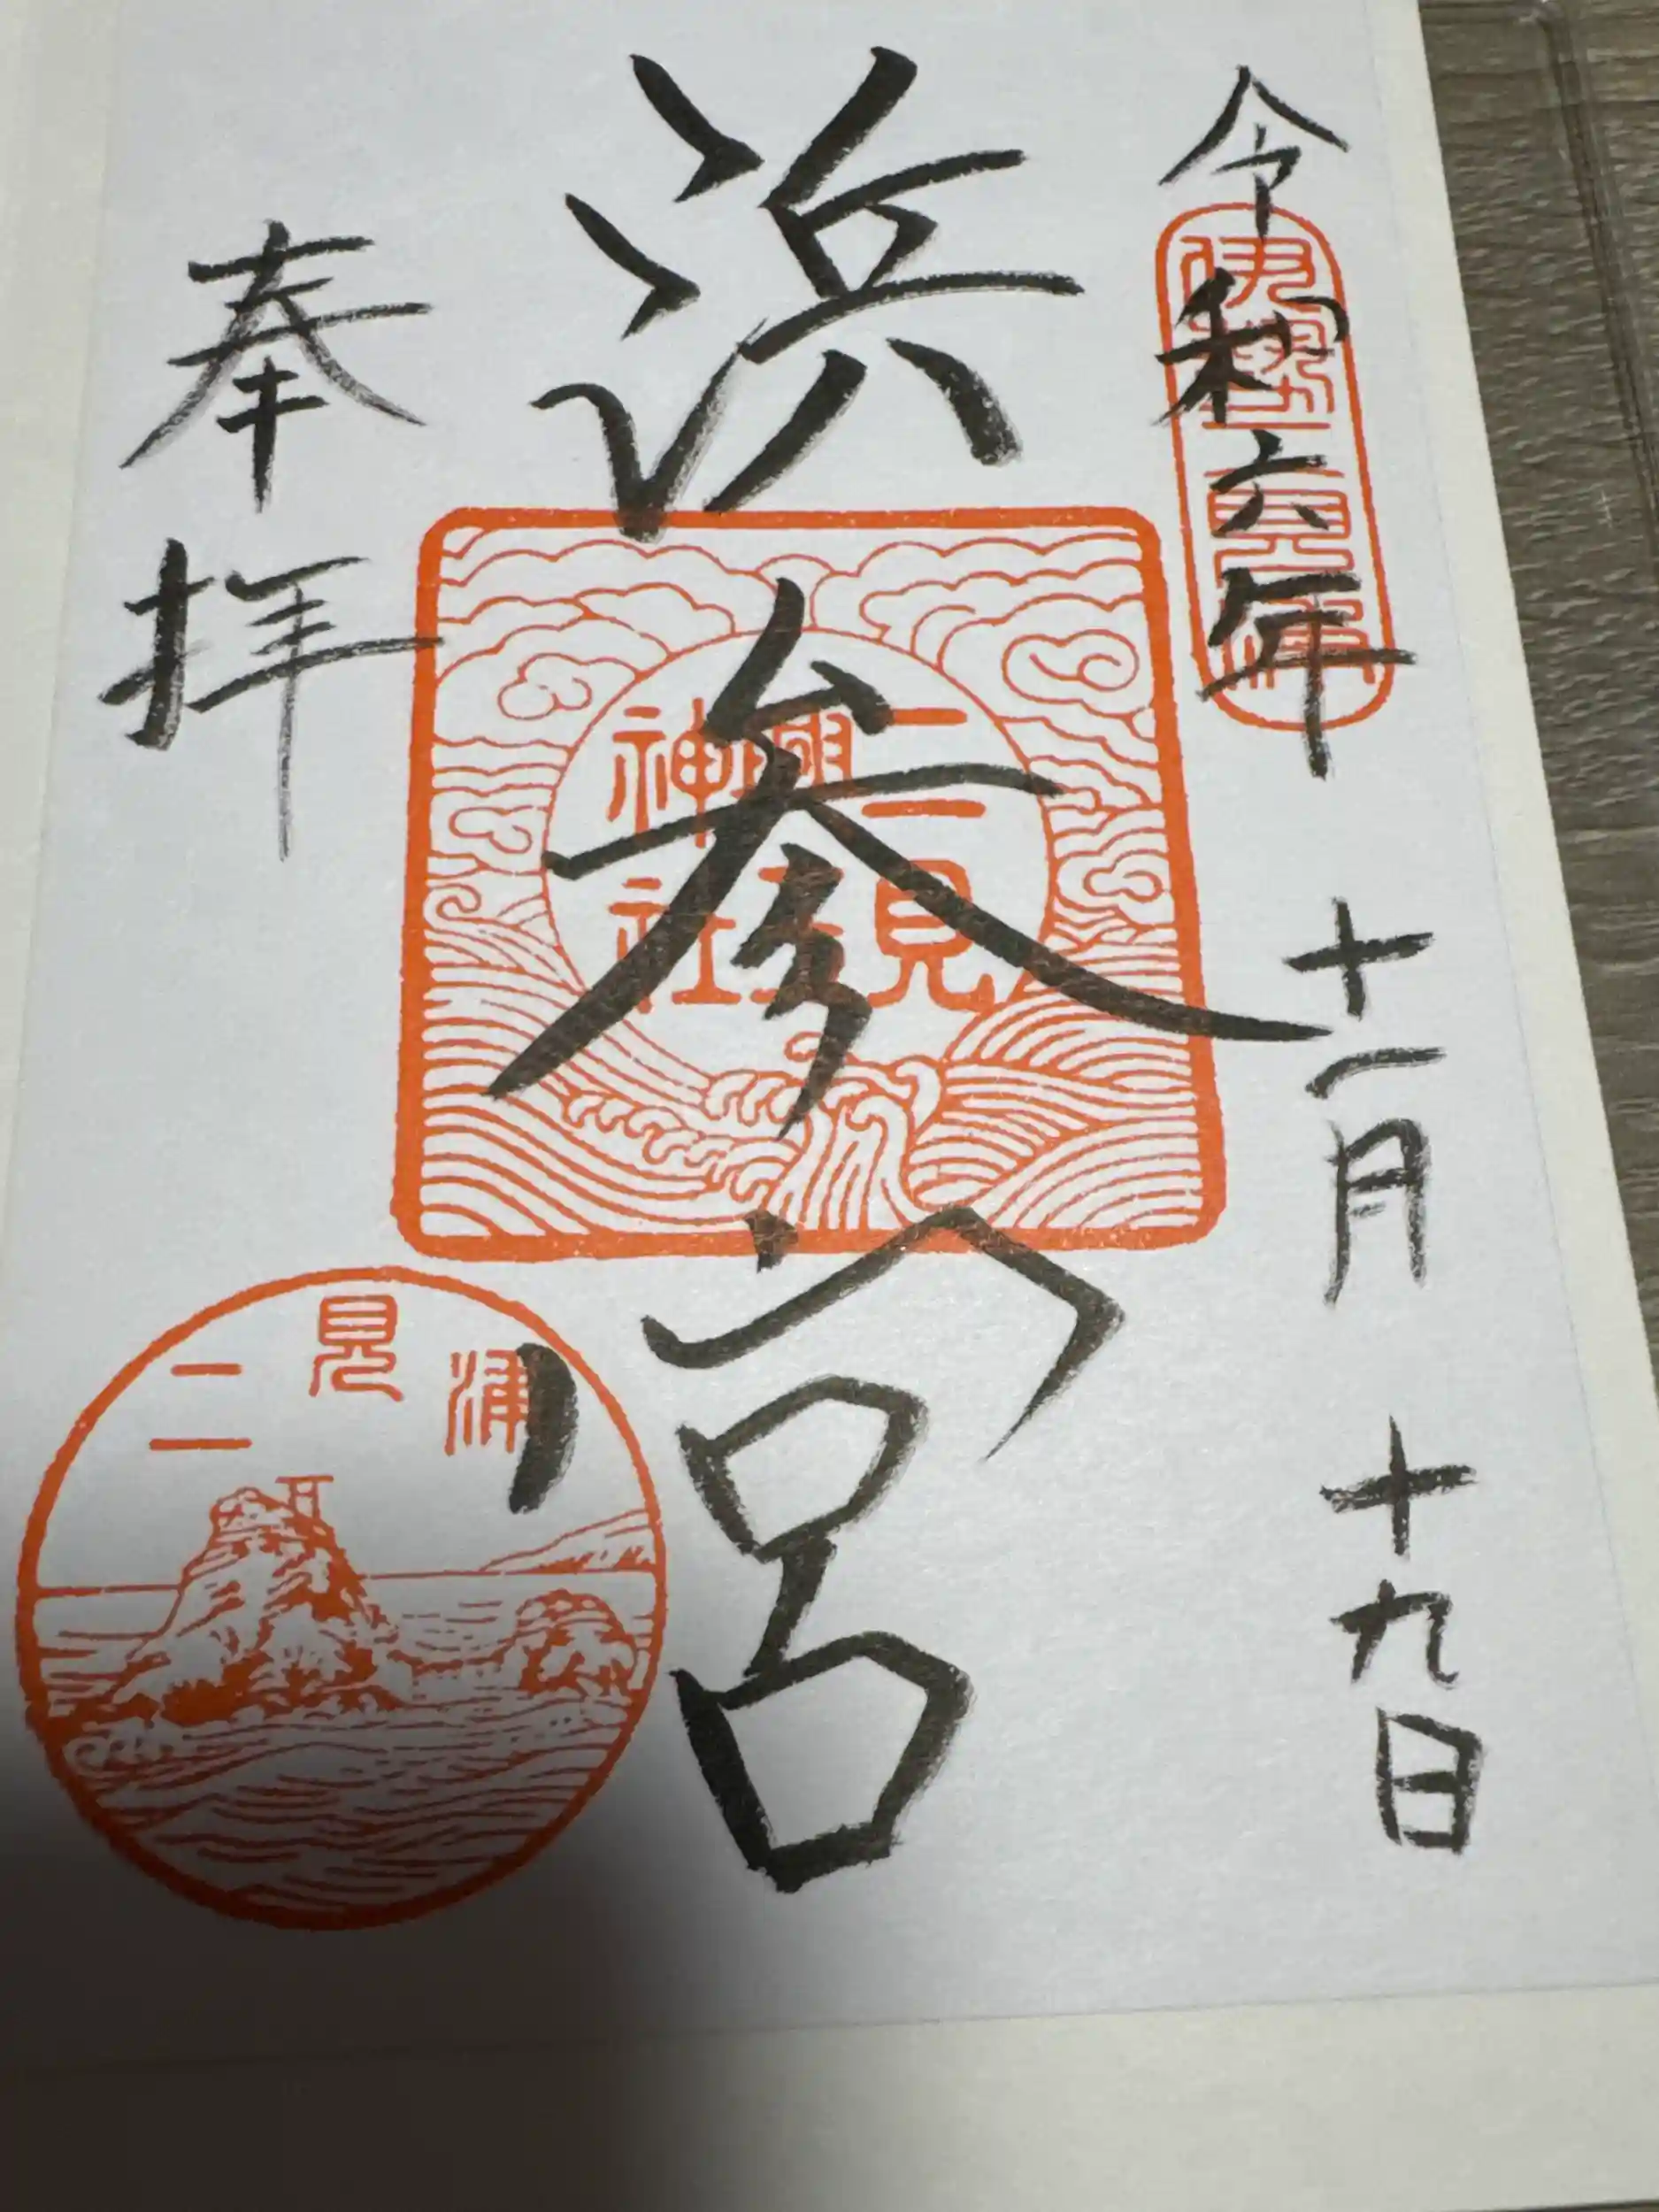 令和六年 十一月 十九日
伊勢
浜参宮
二見
興玉
神社
奉拝
二見浦